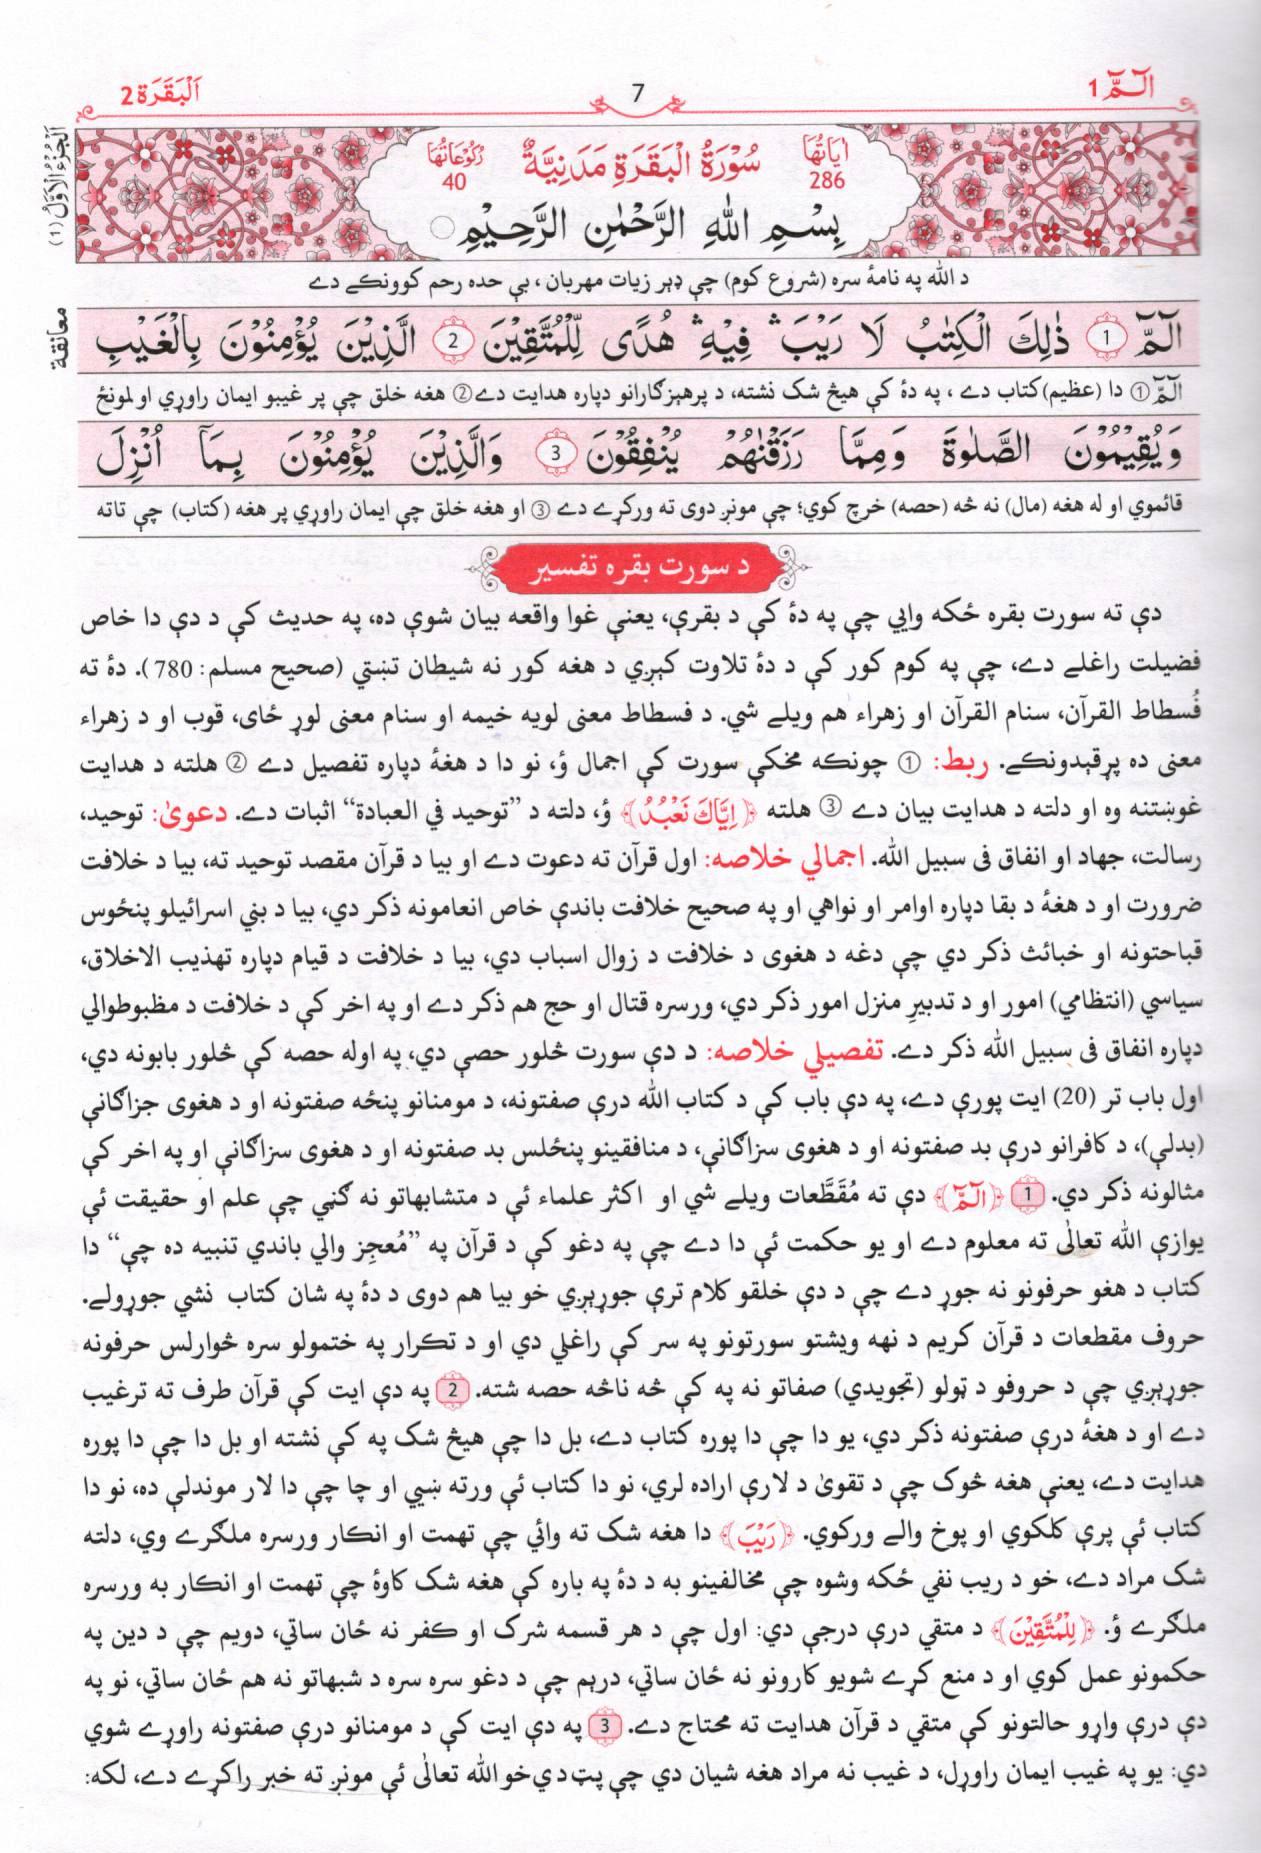 الٓـمّٓ 1
7
اَلْبَقَرَة 2
اَلْجُزْءُ الْاَوَّلُ (۱)
اٰیَاتُهَا 286
سُوْرَةُ الْبَقَرَةِ مَدَنِیَّةٌ
رُکُوْعَاتُهَا 40
بِسْمِ اللّٰهِ الرَّحْمٰنِ الرَّحِیْمِ
د الله په نامهٔ سره (شروع کوم) چې ډېر زیات مهربان ، بې حده رحم کوونکے دے
معانقة
الٓمّٓ 1 ذٰلِكَ الْكِتٰبُ لَا رَيْبَ ۛ فِيْهِ ۛ هُدًى لِّلْمُتَّقِيْنَ 2 الَّذِيْنَ يُؤْمِنُوْنَ بِالْغَيْبِ
الٓمّٓ ① دا (عظیم) کتاب دے ، په دهٔ کې هیڅ شک نشته، د پرهېزګارانو دپاره هدایت دے ② هغه خلق چې پر غیبو ایمان راوړي او لمونځ
وَيُقِيْمُوْنَ الصَّلٰوةَ وَمِمَّا رَزَقْنٰهُمْ يُنْفِقُوْنَ 3 وَالَّذِيْنَ يُؤْمِنُوْنَ بِمَآ اُنْزِلَ
قائموي او له هغه (مال) نه څه (حصه) خرچ کوي؛ چې مونږ دوی ته ورکړے دے ③ او هغه خلق چې ایمان راوړي پر هغه (کتاب) چې تاته
د سورت بقره تفسیر
دې ته سورت بقره ځکه وایي چې په دهٔ کې د بقرې، یعنې غوا واقعه بیان شوې ده، په حدیث کې د دې دا خاص
فضیلت راغلے دے، چې په کوم کور کې د دهٔ تلاوت کېږي د هغه کور نه شیطان تښتي (صحیح مسلم: 780). دهٔ ته
فُسطاط القرآن، سنام القرآن او زهراء هم ویلے شي. د فسطاط معنی لویه خیمه او سنام معنی لوړ ځای، قوب او د زهراء
معنی ده پړقېدونکے. ربط: ① چونکه مخکې سورت کې اجمال وٗ، نو دا د هغهٔ دپاره تفصیل دے ② هلته د هدایت
غوښتنه وه او دلته د هدایت بیان دے ③ هلته ﴿اِيَّاكَ نَعْبُدُ﴾ وٗ، دلته د ”توحید في العبادة“ اثبات دے. دعویٰ: توحید،
رسالت، جهاد او انفاق فی سبیل الله. اجمالي خلاصه: اول قرآن ته دعوت دے او بیا د قرآن مقصد توحید ته، بیا د خلافت
ضرورت او د هغهٔ د بقا دپاره اوامر او نواهي او په صحیح خلافت باندې خاص انعامونه ذکر دي، بیا د بني اسرائیلو پنځوس
قباحتونه او خبائث ذکر دي چې دغه د هغوی د خلافت د زوال اسباب دي، بیا د خلافت د قیام دپاره تهذیب الاخلاق،
سیاسي (انتظامي) امور او د تدبیرِ منزل امور ذکر دي، ورسره قتال او حج هم ذکر دے او په اخر کې د خلافت د مظبوطوالي
دپاره انفاق فی سبیل الله ذکر دے. تفصیلي خلاصه: د دې سورت څلور حصې دي، په اوله حصه کې څلور بابونه دي،
اول باب تر (20) ایت پورې دے، په دې باب کې د کتاب الله درې صفتونه، د مومنانو پنځه صفتونه او د هغوی جزاګانې
(بدلې)، د کافرانو درې بد صفتونه او د هغوی سزاګانې، د منافقینو پنځلس بد صفتونه او د هغوی سزاګانې او په اخر کې
مثالونه ذکر دي. 1 ﴿الٓمّٓ﴾ دې ته مُقَطَّعات ویلے شي او اکثر علماء ئې د متشابهاتو نه ګڼي چې علم او حقیقت ئې
یوازې الله تعالٰی ته معلوم دے او یو حکمت ئې دا دے چې په دغو کې د قرآن په ”مُعجِز والي باندي تنبیه ده چې“ دا
کتاب د هغو حرفونو نه جوړ دے چې د دې خلقو کلام ترې جوړېږي خو بیا هم دوی د دهٔ په شان کتاب نشي جوړولے.
حروف مقطعات د قرآن کریم د نهه ویشتو سورتونو په سر کې راغلي دي او د تکرار په ختمولو سره څوارلس حرفونه
جوړېږي چې د حروفو د ټولو (تجویدي) صفاتو نه په کې څه ناڅه حصه شته. 2 په دې ایت کې قرآن طرف ته ترغیب
دے او د هغهٔ درې صفتونه ذکر دي، یو دا چې دا پوره کتاب دے، بل دا چې هیڅ شک په کې نشته او بل دا چې دا پوره
هدایت دے، یعنې هغه څوک چې د تقویٰ د لارې اراده لري، نو دا کتاب ئې ورته ښیي او چا چې دا لار موندلې ده، نو دا
کتاب ئې پرې کلکوي او پوخ والے ورکوي. ﴿رَيْبَ﴾ دا هغه شک ته وائي چې تهمت او انکار ورسره ملګرے وي، دلته
شک مراد دے، خو د ریب نفي ځکه وشوه چې مخالفینو به د دهٔ په باره کې هغه شک کاوهٔ چې تهمت او انکار به ورسره
ملګرے وٗ. ﴿لِلْمُتَّقِيْنَ﴾ د متقي درې درجې دي: اول چې د هر قسمه شرک او کفر نه ځان ساتي، دویم چې د دین په
حکمونو عمل کوي او د منع کړے شویو کارونو نه ځان ساتي، درېم چې د دغو سره سره د شبهاتو نه هم ځان ساتي، نو په
دې درې واړو حالتونو کې متقي د قرآن هدایت ته محتاج دے. 3 په دې ایت کې د مومنانو درې صفتونه راوړے شوي
دي: یو په غیب ایمان راوړل، د غیب نه مراد هغه شیان دي چې پټ دي خو الله تعالٰی ئې مونږ ته خبر راکړے دے، لکه: